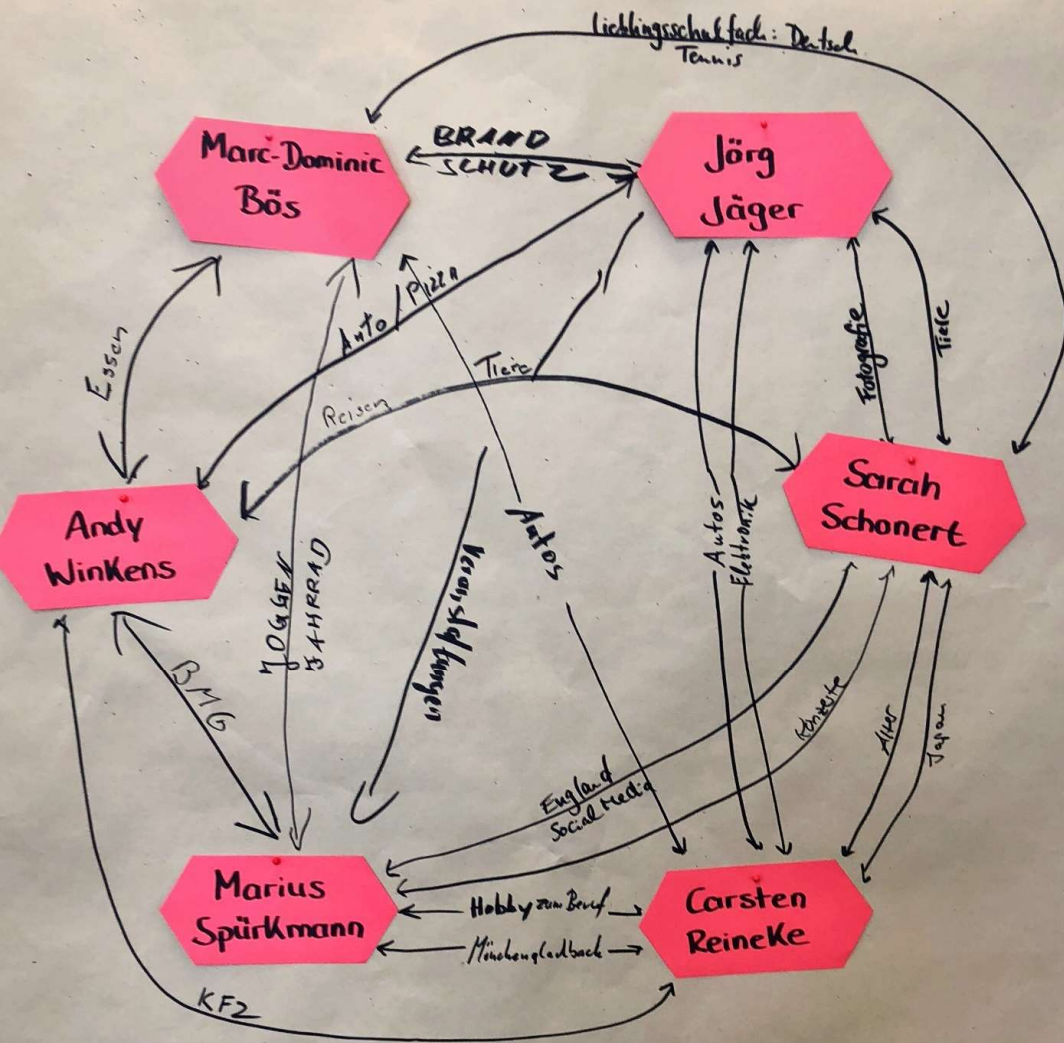 Lieblingsschulfach: Deutsch
Tennis
Marc-Dominic
Bös
BRAND
SCHUTZ
Jörg
Jäger
Essen
Auto / Pizza
Tiere
Reisen
Fotografie
Tiere
Andy
Winkens
Sarah
Schonert
JOGGEN
FAHRRAD
Autos
Veranstaltungen
Autos
Elektronik
BMG
England
Social Media
Konzerte
Alter
Japan
Marius
Spürkmann
Hobby zum Beruf
Mönchengladbach
Carsten
Reineke
KFZ